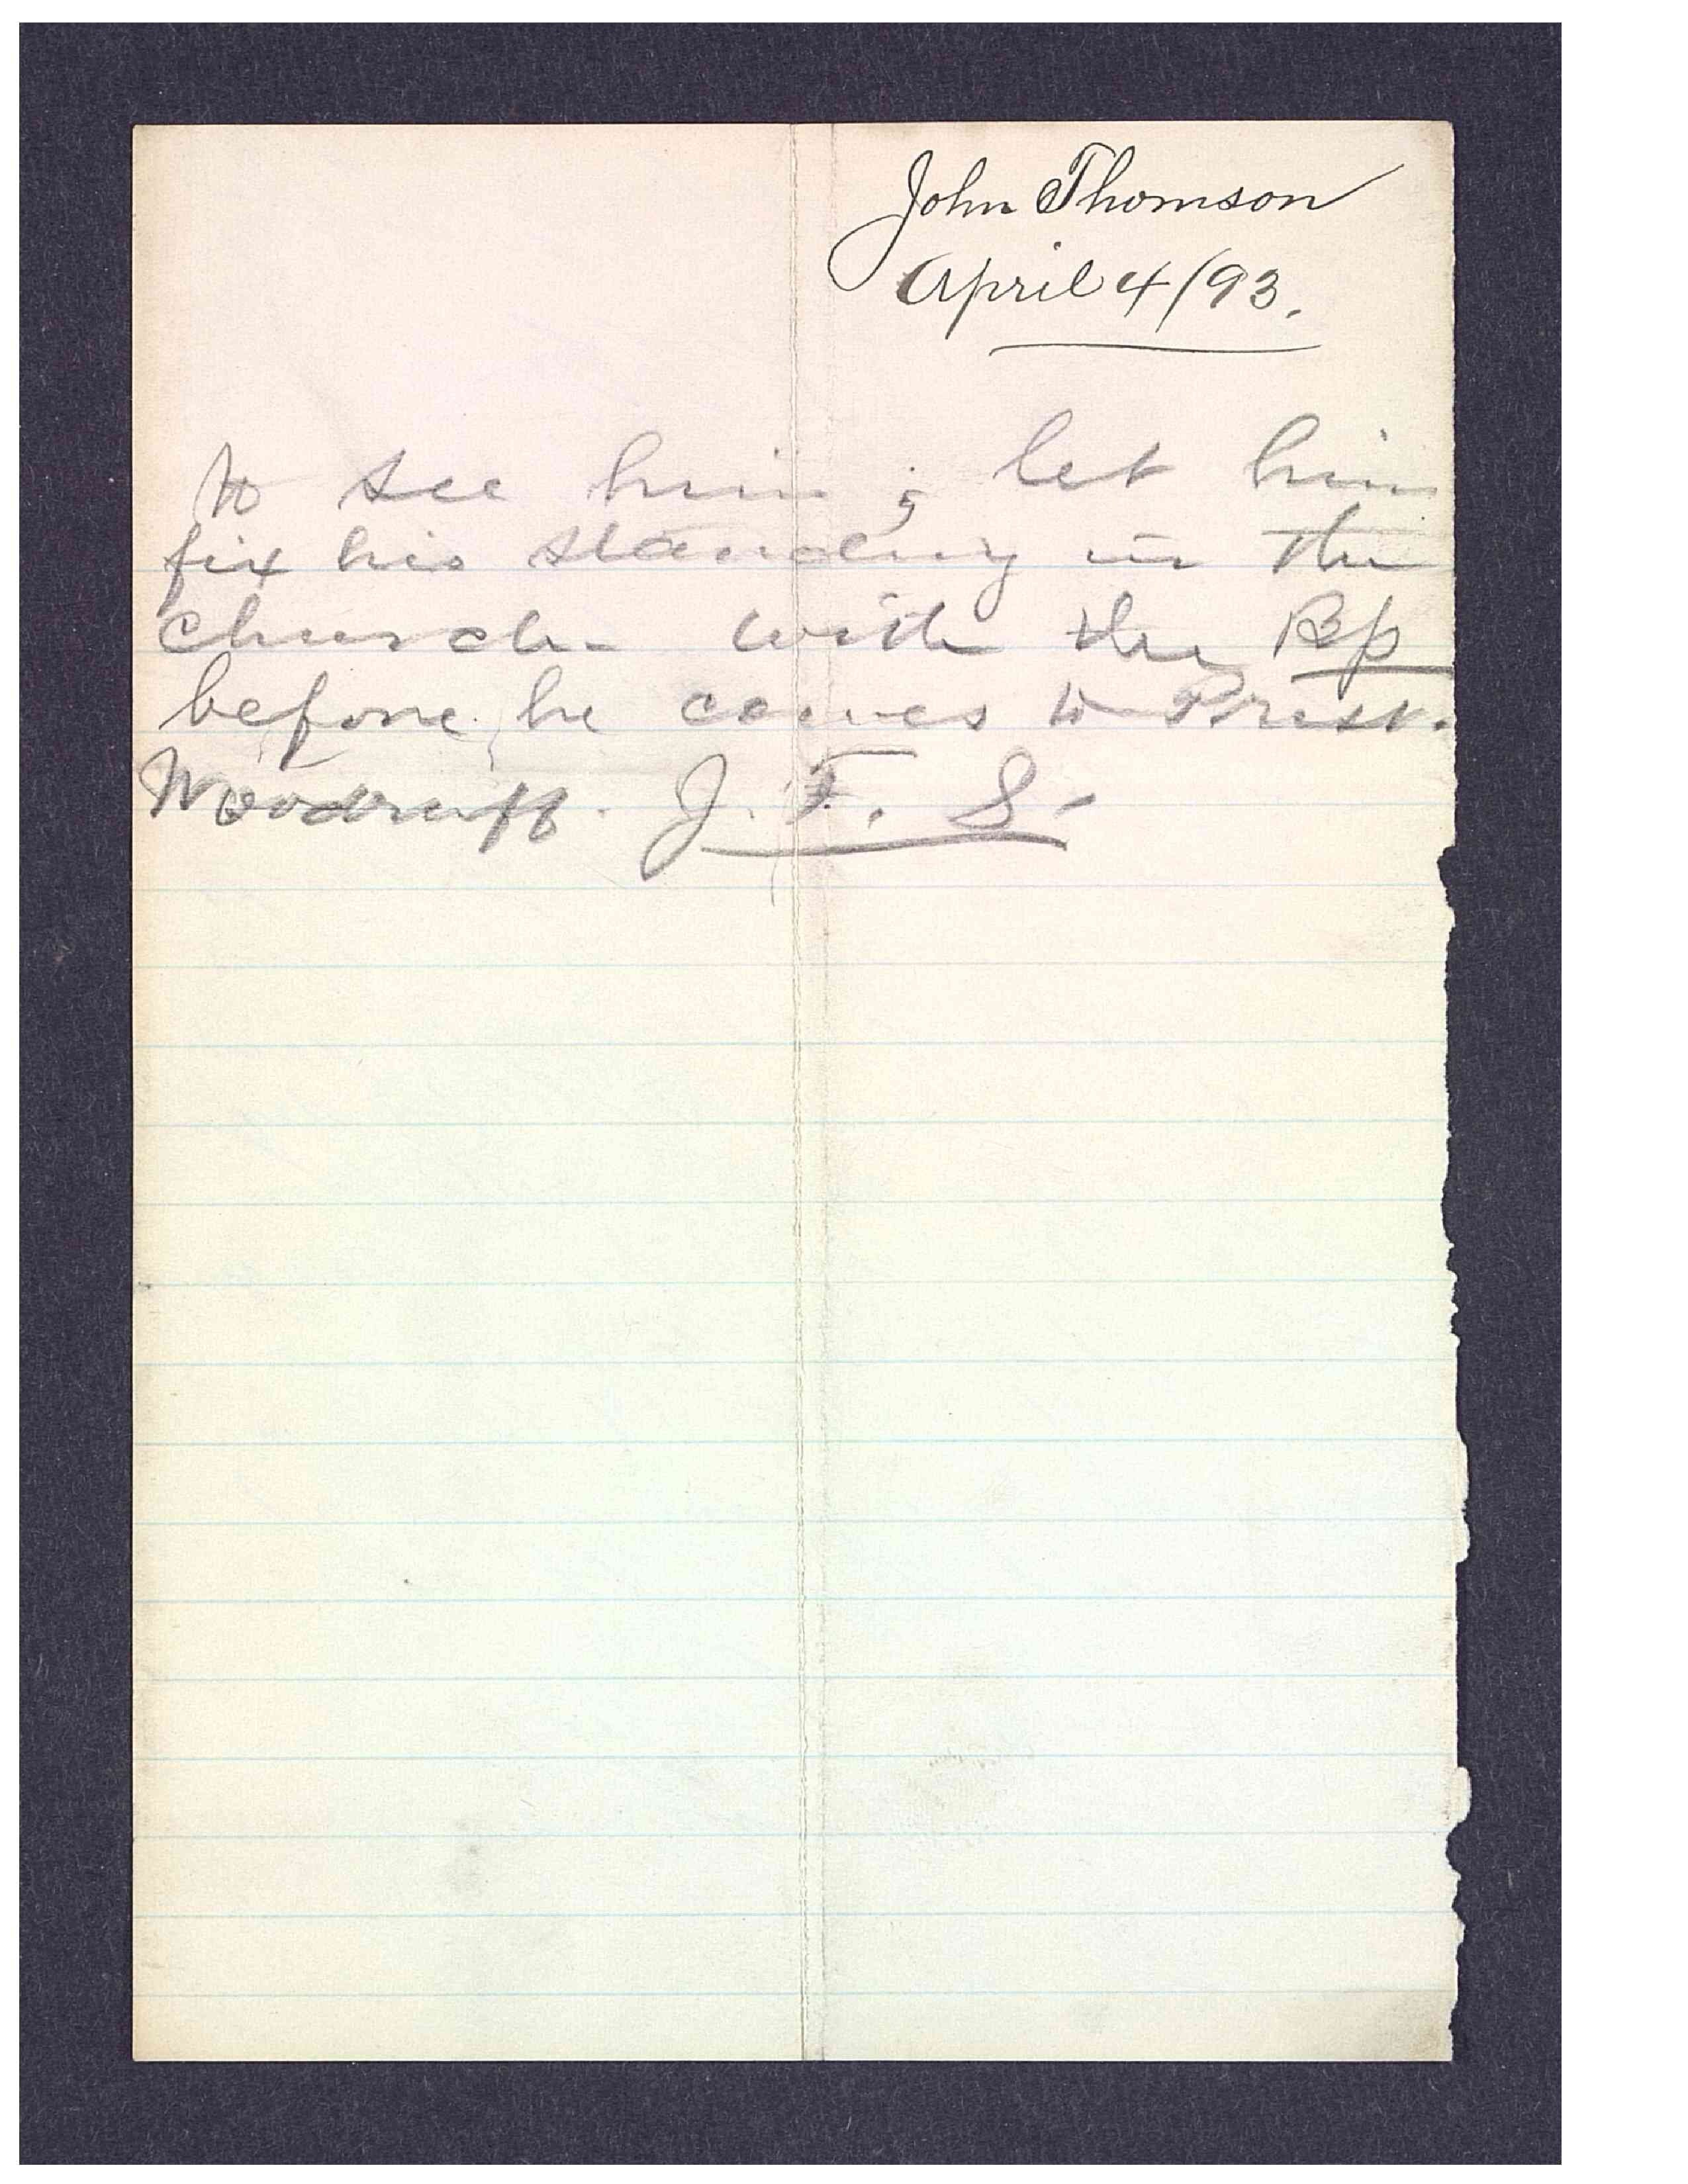 John Thomson
April 4/93.
To see him; let him
fix his standing in the
church with the Bp
before he comes to Prest.
Woodruff. J. F. S.